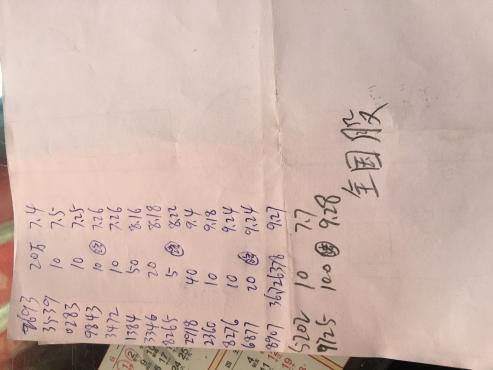 20万 7.4
3539 10 7.5
0283 10 7.25
9843 10 7.26
3472 10 7.26
1384 50 8.16
3346 20 8.18
8265 5 8.22
2918 40 9.4
2360 10 9.18
8276 10 9.24
6877 20 9.24
8907 36726378 9.27
5202 10 7.7
9125 100 9.28
全国股